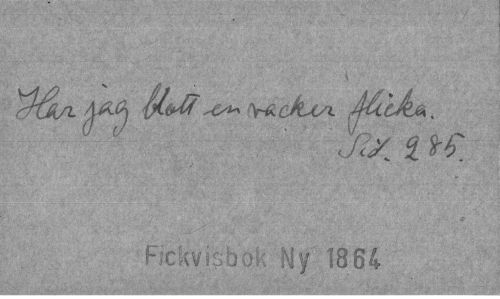 Har jag blott en vacker flicka.
Sid. 285.
Fickvisbok Ny 1864